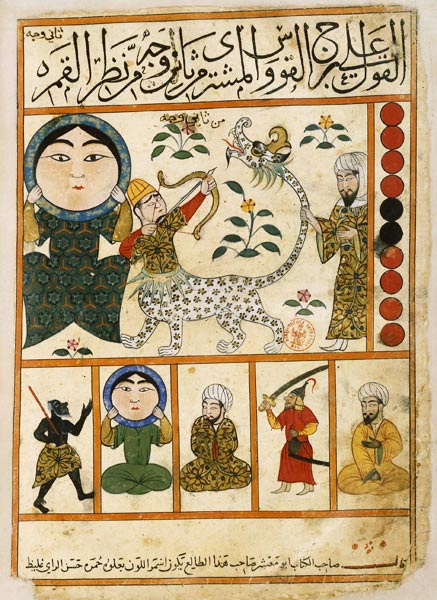 ثاني وجه
القول علي برج القوس والمشترى من ثاني وجه من نظر القمر
من ثاني وجه
صاحب الكتاب ابو معشر صاحب هذا الطالع يكون اسمر اللون يعلوه حمره حسن الراي غليظ